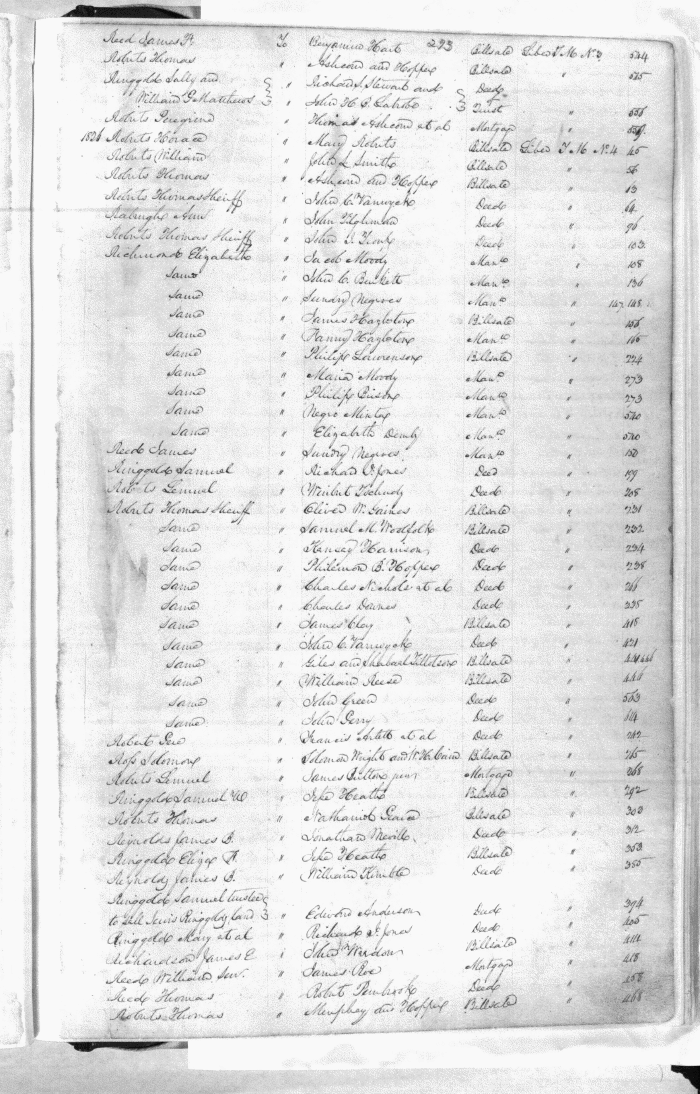 Reed James H. To Benjamin Hart 293 Billsale Liber T M No 3 544
Roberts Thomas " Ashcom and Hopper Billsale " 545
Ringgold Sally and " Richard I. Stewart and Deed
William G. Matthews " John H. B. Latrobe Trust " 556
Roberts Peregrine " Thomas Ashcom et al Mortgage " 559
1826 Roberts Horace " Mary Roberts Billsale Liber T M No 4 45
Roberts William " John L Smith Billsale " 56
Roberts Thomas " Ashcom and Hopper Billsale " 13
Roberts Thomas Sheriff " John C. Vanwyck Deed " 64
Ann " John Tilghman Deed " 76
Roberts Thomas Sheriff " John Deed " 103
Richmond Elizabeth " Jacob Moody Mano " 108
Same " John C. Burkett Mano " 136
Same " Sundry Negroes Mano " 147, 148
Same " James Hazleton Billsale " 156
Same " Fanny Hazleton Mano " 166
Same " Philip Lowrenson Billsale " 224
Same " Maria Moody Mano " 273
Same " Philip Mano " 273
Same " Negro Minta Mano " 540
Same " Elizabeth Demby Mano " 540
Reed James " Sundry Negroes Mano " 150
Ringgold Samuel " Richard I Jones Deed " 199
Roberts Lemuel " Deed " 208
Roberts Thomas Sheriff " Oliver W. Gaines Billsale " 231
Same " Samuel M. Woolfolk Billsale " 232
Same " Kensey Harrison Deed " 234
Same " Philemon B. Hopper Deed " 238
Same " Charles Nichols et al Deed " 261
Same " Charles Downes Deed " 338
Same " James Clay Billsale " 418
Same " John C. Vanwyck Deed " 421
Same " Giles and Tillotson Billsale " 441
Same " William Reese Billsale " 444
Same " John Green Deed " 563
Same " John Gerry Deed " 114
Robert Geo " Francis Arlett et al Deed " 242
Ross Solomon " Solomon Wright and W. H. Cain Billsale " 265
Roberts Lemuel " James Button junr Mortgage " 268
Ringgold Samuel W " Jesse Heath Billsale " 292
Roberts Thomas " Nathaniel Billsale " 303
Reynolds James B. " Jonathan Nevill Deed " 312
Ringgold Eliza A " Jesse Heath Billsale " 353
Reynolds James B. " William Kimble Deed " 355
Ringgold Samuel trustee
to sell Lewis Ringgolds land " Edward Anderson Deed " 394
Ringgold Mary et al " Richard I Jones Deed " 405
Richardson James E " John Wardon Billsale " 411
Reed William Senr. " James Roe Mortgage " 418
Reed Thomas " Robert Pembrook Deed " 458
Roberts Thomas " and Hopper Billsale " 468